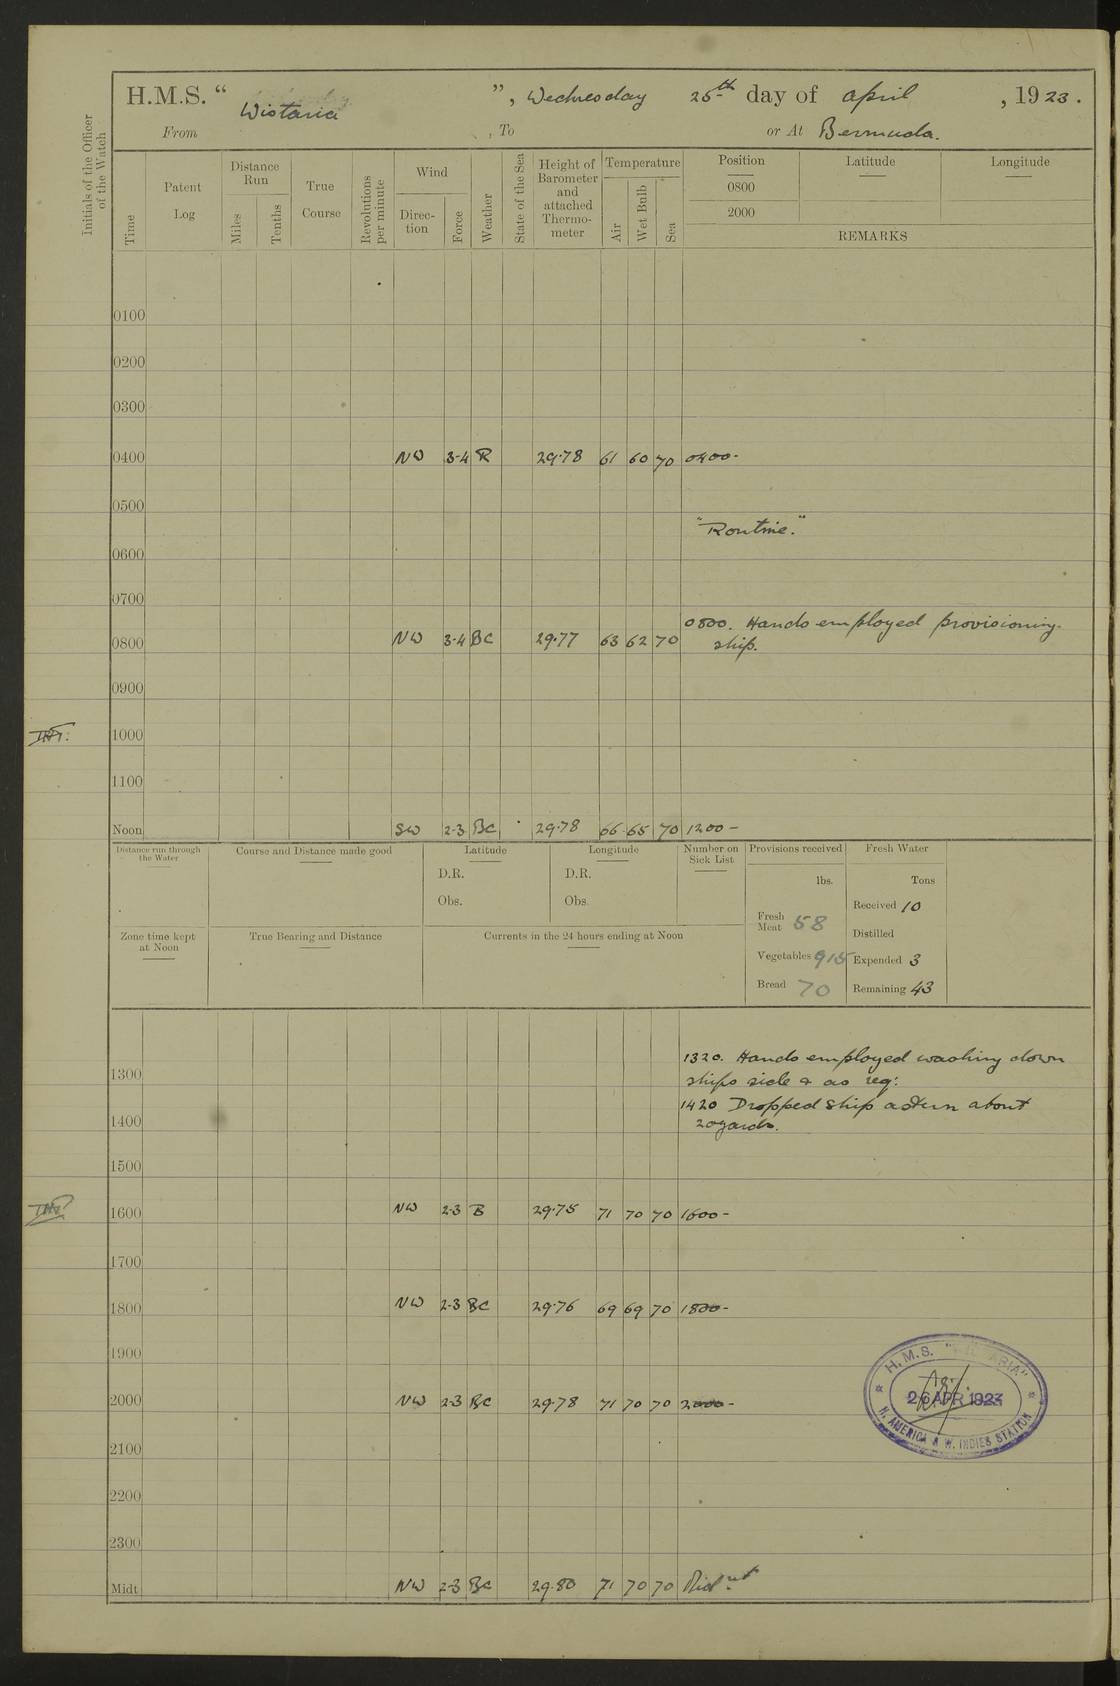 H.M.S. “ Wistaria ”, Wednesday 25th day of April, 1923.
From , To or At Bermuda.
Initials of the Officer of the Watch
Time
Patent Log
Distance Run
Miles
Tenths
True Course
Revolutions per minute
Wind
Direction
Force
Weather
State of the Sea
Height of Barometer and attached Thermometer
Temperature
Air
Wet Bulb
Sea
Position Latitude Longitude
0800
2000
REMARKS
0100
0200
0300
0400 NW 3-4 R 29.78 61 60 70 0400-
0500
"Routine."
0600
0700
0800. Hands employed provisioning
0800 NW 3-4 BC 29.77 63 62 70 ship.
0900
1000
1100
Noon SW 2-3 BC 29.78 66 65 70 1200 -
Distance run through the Water
Course and Distance made good
Latitude
D.R.
Obs.
Longitude
D.R.
Obs.
Number on Sick List
Provisions received
lbs.
Fresh Meat 58
Vegetables 915
Bread 70
Fresh Water
Tons
Received 10
Distilled
Expended 3
Remaining 43
Zone time kept at Noon
True Bearing and Distance
Currents in the 24 hours ending at Noon
1320. Hands employed washing down
1300 ships side & as req:
1420 Dropped ship astern about
1400 20yards.
1500
1600 NW 2-3 B 29.75 71 70 70 1600-
1700
1800 NW 2-3 BC 29.76 69 69 70 1800-
1900
2000 NW 2-3 BC 29.78 71 70 70 2000-
2100
2200
2300
Midt NW 2-3 BC 29.80 71 70 70 Midnt
H.M.S. "WISTARIA"
26 APR 1923
N. AMERICA & W. INDIES STATION